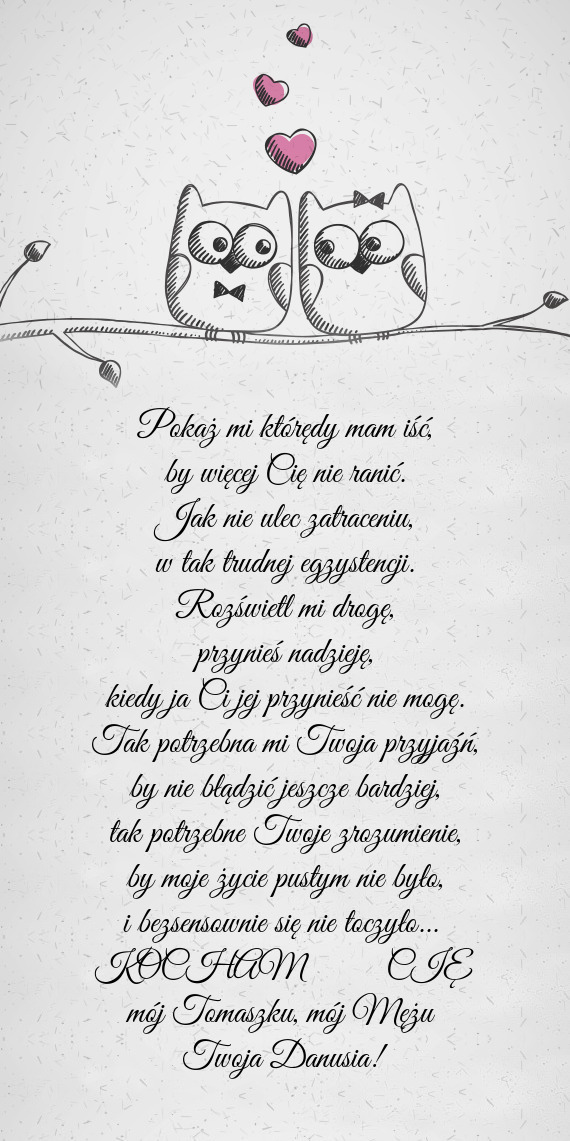 Pokaż mi którędy mam iść,
by więcej Cię nie ranić.
Jak nie ulec zatraceniu,
w tak trudnej egzystencji.
Rozświetl mi drogę,
przynieś nadzieję,
kiedy ja Ci jej przynieść nie mogę.
Tak potrzebna mi Twoja przyjaźń,
by nie błądzić jeszcze bardziej,
tak potrzebne Twoje zrozumienie,
by moje życie pustym nie było,
i bezsensownie się nie toczyło...
KOCHAM CIĘ
mój Tomaszku, mój Mężu
Twoja Danusia!